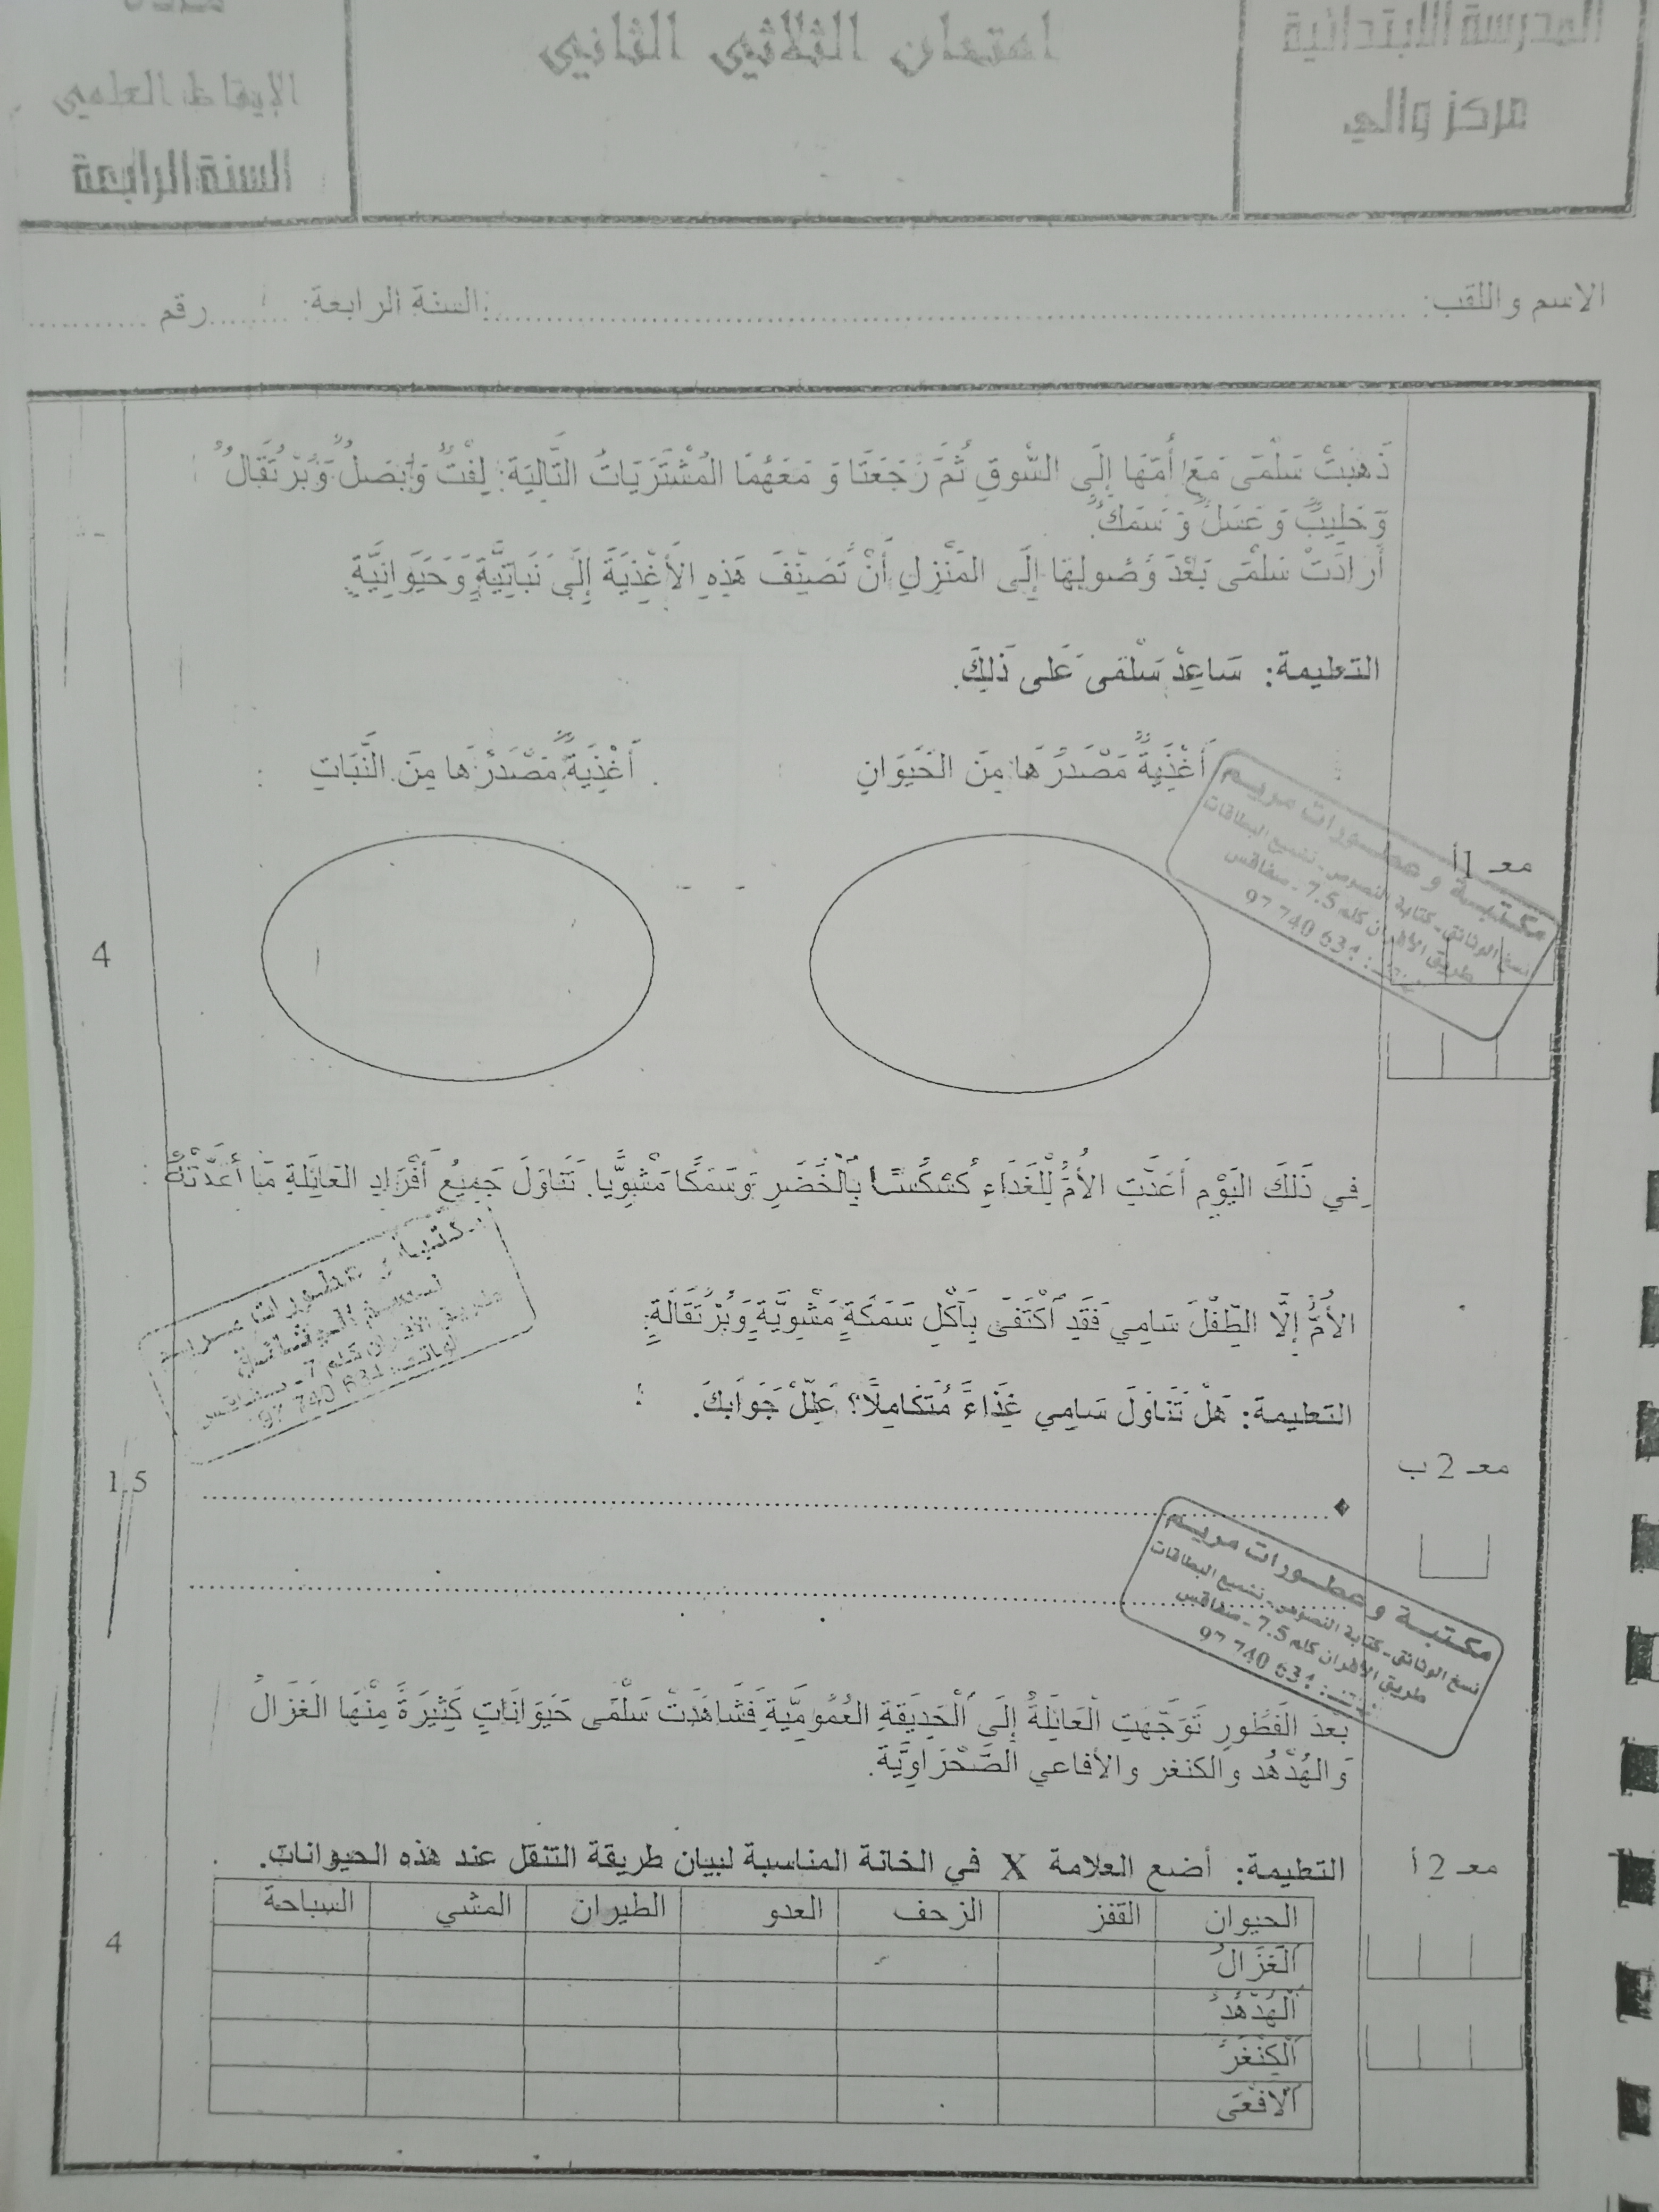 المدرسة الابتدائية
مركز والي
امتحان الثلاثي الثاني
الإيقاظ العلمي
السنة الرابعة
الاسم واللقب: ........................ السنة الرابعة: ........ رقم ...........
ذَهَبَتْ سَلْمَى مَعَ أُمِّهَا إِلَى السُّوقِ ثُمَّ رَجَعَتَا وَ مَعَهُمَا المُشْتَرَيَاتُ التَّالِيَة: لِفْتٌ وَبَصَلٌ وَبُرْتُقَالٌ
وَحَلِيبٌ وَ عَسَلٌ وَ سَمَكٌ.
أَرَادَتْ سَلْمَى بَعْدَ وُصُولِهَا إِلَى المَنْزِلِ أَنْ تُصَنِّفَ هَذِهِ الأَغْذِيَةَ إِلَى نَبَاتِيَّةٍ وَ حَيَوَانِيَّةٍ
التعليمة: سَاعِدْ سَلْمَى عَلَى ذَلِكَ.
أَغْذِيَةٌ مَصْدَرُهَا مِنَ الحَيَوَانِ
أَغْذِيَةٌ مَصْدَرُهَا مِنَ النَّبَاتِ
معـ 1 أ
4
مكتبة و عطورات مريم
نسخ الوثائق - كتابة النصوص - تشميع البطاقات
طريق الأفران كلم 7.5 - صفاقس
97 740 634
فِي ذَلِكَ اليَوْمِ أَعَدَّتِ الأُمُّ لِلْغَدَاءِ كُسْكُسًا بِالْخُضَرِ وَسَمَكًا مَشْوِيًّا. تَنَاوَلَ جَمِيعُ أَفْرَادِ العَائِلَةِ مَا أَعَدَّتْهُ
الأُمُّ إِلَّا الطِّفْلَ سَامِي فَقَدِ اكْتَفَى بِأَكْلِ سَمَكَةٍ مَشْوِيَّةٍ وَبُرْتُقَالَةٍ.
التعليمة: هَلْ تَنَاوَلَ سَامِي غِذَاءً مُتَكَامِلًا؟ عَلِّلْ جَوَابَكَ.
معـ 2 ب
1.5
مكتبة و عطورات مريم
نسخ الوثائق - كتابة النصوص - تشميع البطاقات
طريق الأفران كلم 7.5 - صفاقس
97 740 634
بَعْدَ الفَطُورِ تَوَجَّهَتِ الْعَائِلَةُ إِلَى الْحَدِيقَةِ العُمُومِيَّةِ فَشَاهَدَتْ سَلْمَى حَيَوَانَاتٍ كَثِيرَةً مِنْهَا الغَزَالُ
وَالهُدْهُد والكنغر والأفاعي الصَّحْرَاوِيَّةَ.
التعليمة: أضع العلامة X في الخانة المناسبة لبيان طريقة التنقل عند هذه الحيوانات.
معـ 2 أ
4
الحيوان القفز الزحف العدو الطيران المشي السباحة
اَلْغَزَالُ
اَلْهُدْهُدُ
اَلْكَنْغَرُ
اَلْأَفْعَى